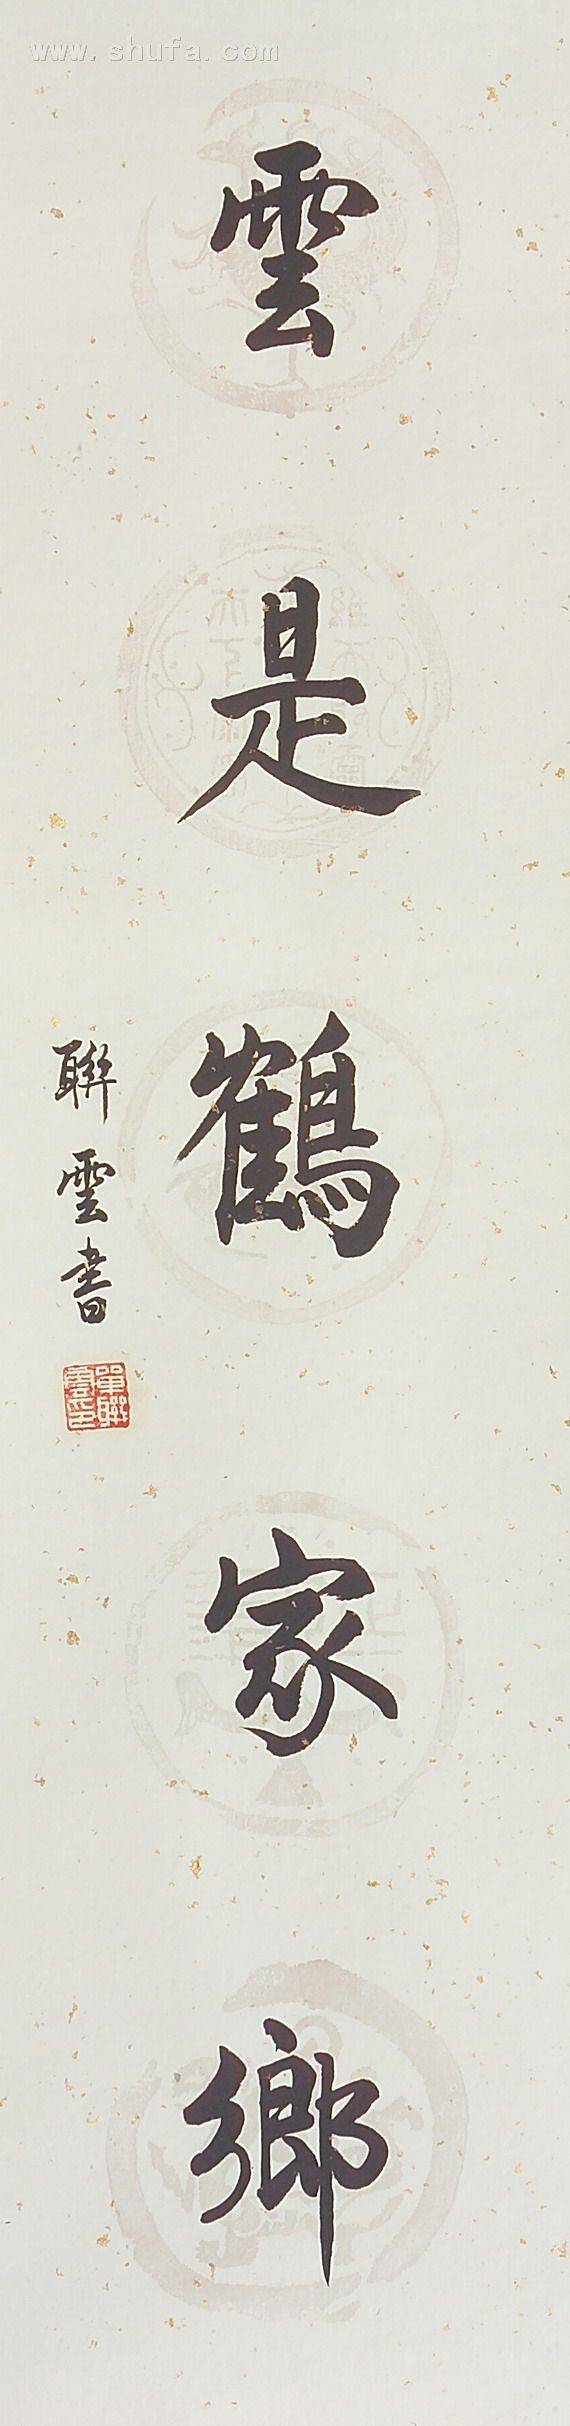 www.shufa.com
雲是鶴家鄉
聯雲書
單聯雲印